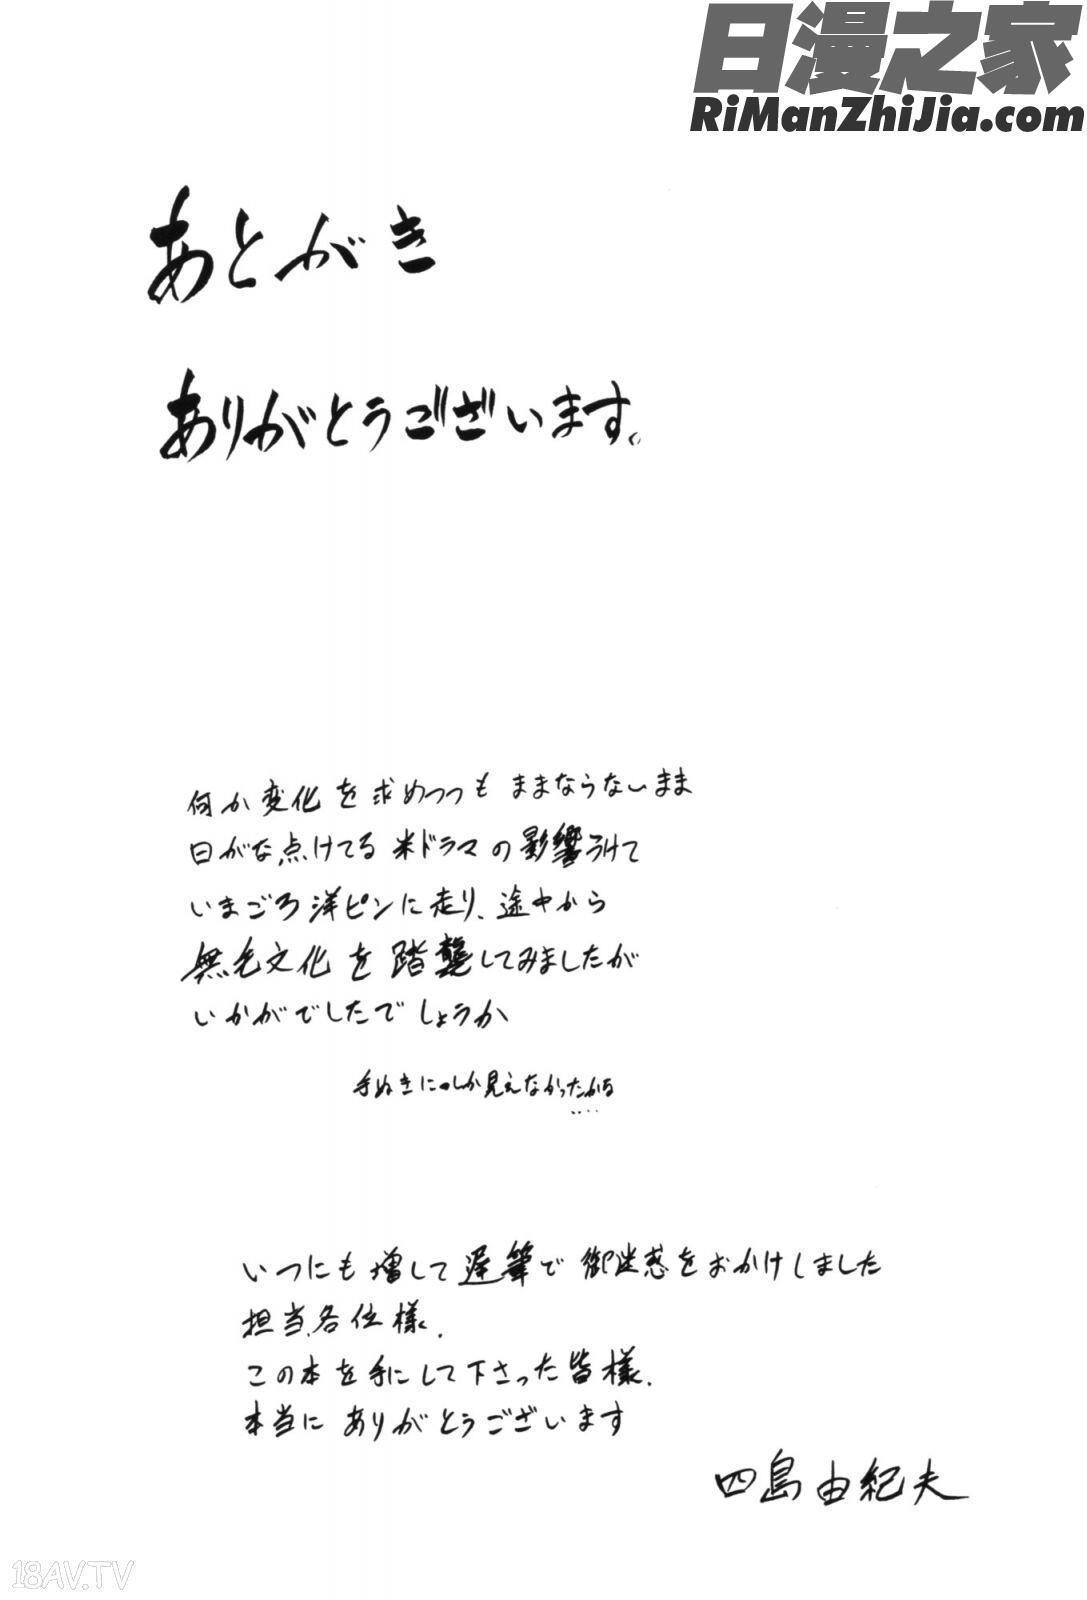 日漫之家
RiManZhiJia.com
あとがき
ありがとうございます。
何か変化を求めつつもままならないまま
日がな点けてる米ドラマの影響うけて
いまごろ洋ピンに走り、途中から
無毛文化を踏襲してみましたが
いかがでしたでしょうか
手ぬきにしか見えなかったから
....
いつにも増して遅筆で御迷惑をおかけしました
担当各位様.
この本を手にして下さった皆様.
本当にありがとうございます
四島由紀夫
18AV.TV